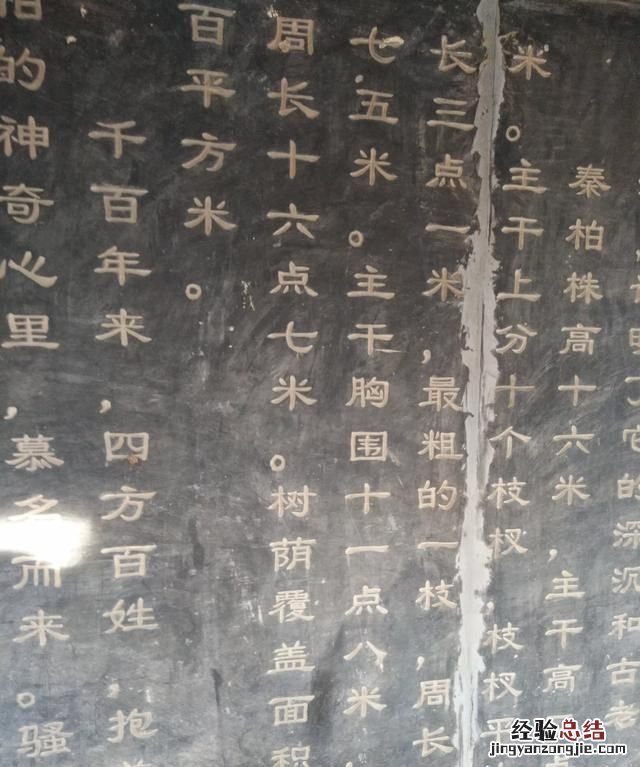 了它的深沉和古老
秦柏株高十六米，主干高
米。主干上分十个枝杈，枝杈平
长三点一米，最粗的一枝，周长
七五米。主干胸围十一点八米，
周长十六点七米。树荫覆盖面积
百平方米。
千百年来，四方百姓，抱
柏的神奇心里，慕名而来。骚
经验总结
jingyanzongjie.com